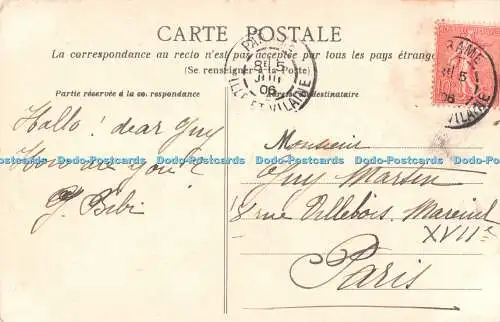 CARTE POSTALE
La correspondance au recto n'est pas acceptée par tous les pays étrang
(Se renseigner à la Poste)
Partie réservée à la correspondance
Adresse du destinataire
PARAMÉ
5
06
ILLE ET VILAINE
RAMÉ
5
06
VILAINE
Hallo! dear Guy
How are you?
G. Bibi
Monsieur
Guy Martin
rue Villebois Mareuil
XVIIe
Paris
Dodo-Postcards Dodo-Postcards Dodo-Postcards Dodo-Postcards Dodo-Postcards Dodo-Postcards